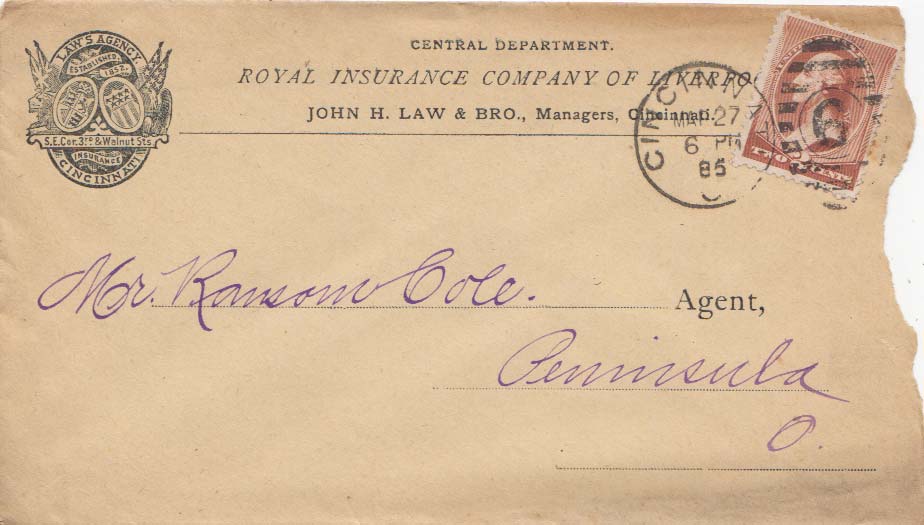 LAW'S AGENCY.
ESTABLISHED
1852.
S.E. Cor. 3rd & Walnut Sts.
INSURANCE
CINCINNATI
CENTRAL DEPARTMENT.
ROYAL INSURANCE COMPANY OF LIVERPOO
JOHN H. LAW & BRO., Managers, Cincinnati.
CINCINNATI
MAR 27
6 PM
85
O
6
TWO CENTS
Mr. Ransom Cole. Agent,
Peninsula
O.